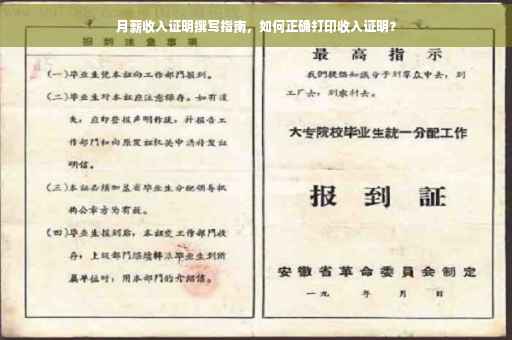 月薪收入证明撰写指南，如何正确打印收入证明？
报到注意事项
(一)毕业生凭本证向工作部门报到。
(二)毕业生对本证应注意保存。如有遗
失，应即登报声明作废，并报告工
作部门和向原发证机关申请补发证
明信。
(三)本证必须加盖省毕业生分配领导机
构公章方为有效。
(四)毕业生报到后，本证交工作部门收
存，上级部门
毕业生到所
属单位时，用本部门的介绍信。
最高指示
我们提倡知识分子到群众中去，到
工厂去，到农村去。
大专院校毕业生统一分配工作
报到証
安徽省革命委員会制定
一九 年 月 日